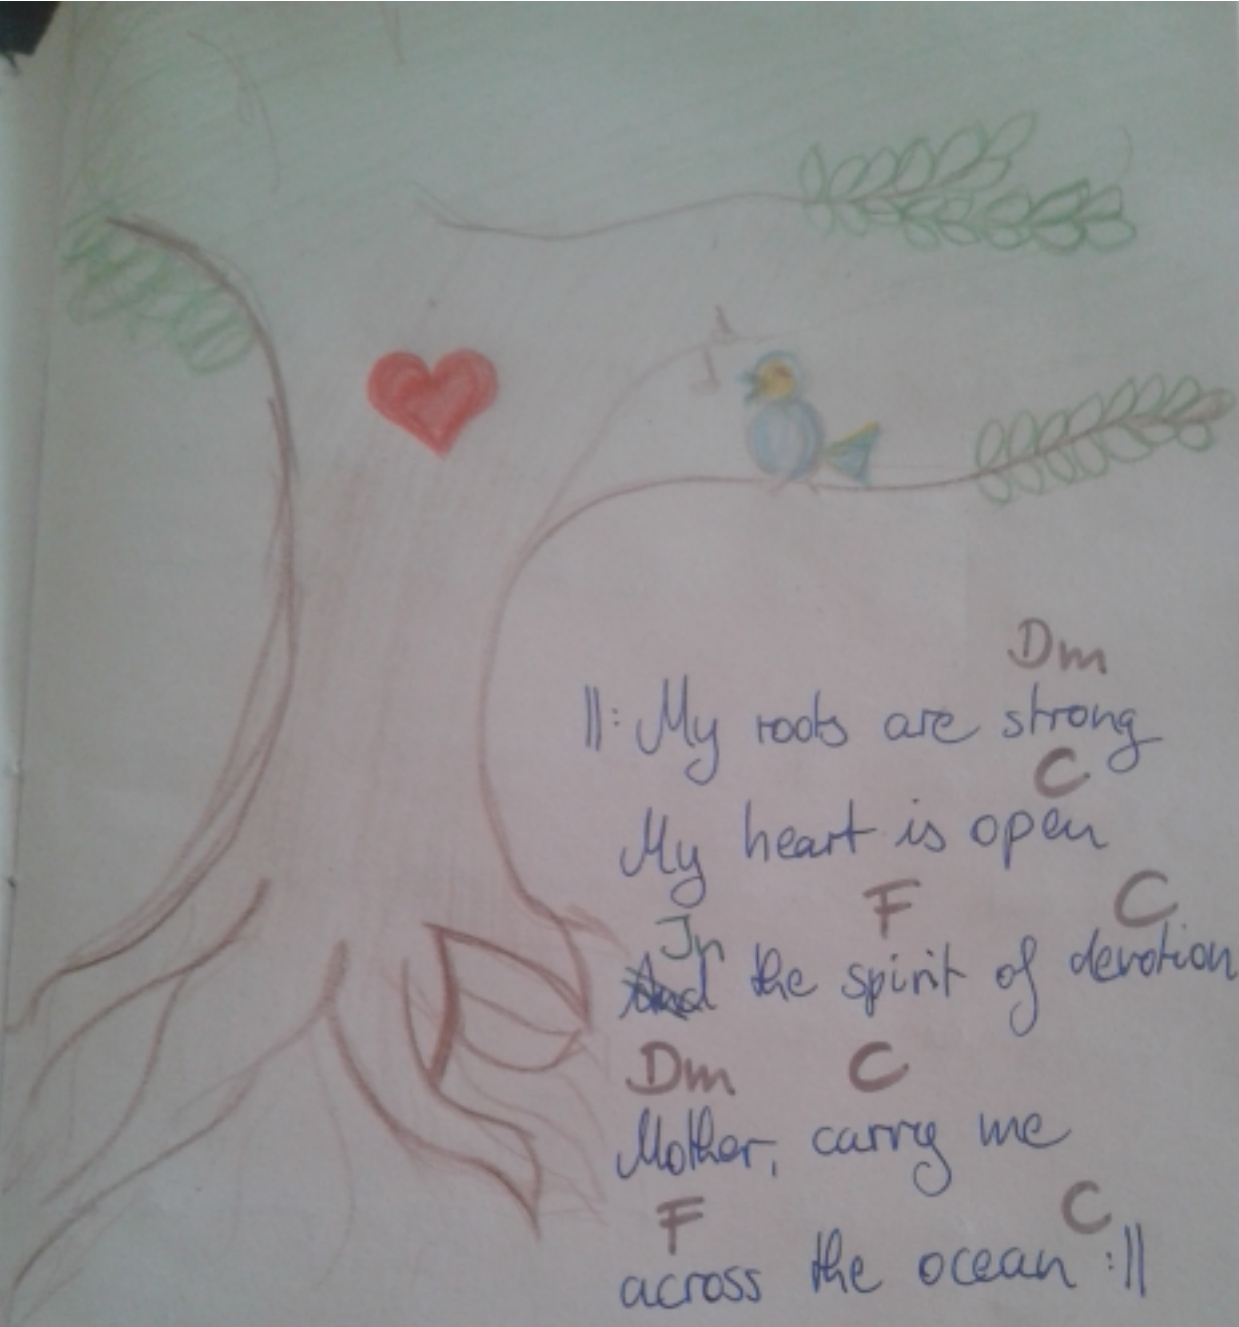 Dm
||: My roots are strong
C
My heart is open
F C
In the spirit of devotion
Dm C
Mother, carry me
F C
across the ocean :||